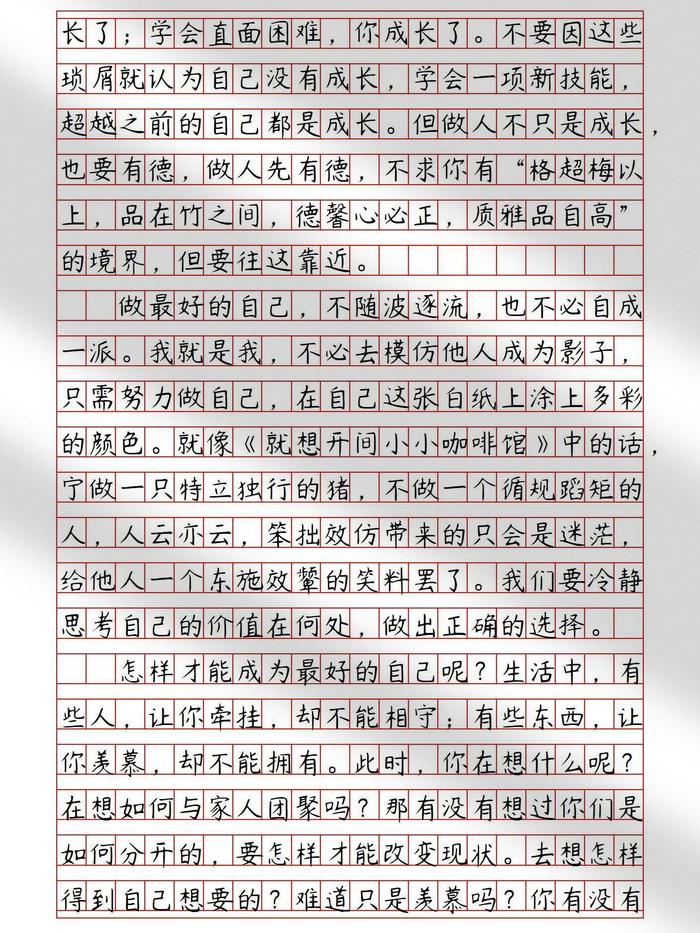 长了；学会直面困难，你成长了。不要因这些
琐屑就认为自己没有成长，学会一项新技能，
超越之前的自己都是成长。但做人不只是成长，
也要有德，做人先有德，不求你有“格超梅以
上，品在竹之间，德馨心必正，质雅品自高”
的境界，但要往这靠近。
做最好的自己，不随波逐流，也不必自成
一派。我就是我，不必去模仿他人成为影子，
只需努力做自己，在自己这张白纸上涂上多彩
的颜色。就像《就想开间小小咖啡馆》中的话，
宁做一只特立独行的猪，不做一个循规蹈矩的
人，人云亦云，笨拙效仿带来的只会是迷茫，
给他人一个东施效颦的笑料罢了。我们要冷静
思考自己的价值在何处，做出正确的选择。
怎样才能成为最好的自己呢？生活中，有
些人，让你牵挂，却不能相守；有些东西，让
你羡慕，却不能拥有。此时，你在想什么呢？
在想如何与家人团聚吗？那有没有想过你们是
如何分开的，要怎样才能改变现状。去想怎样
得到自己想要的？难道只是羡慕吗？你有没有